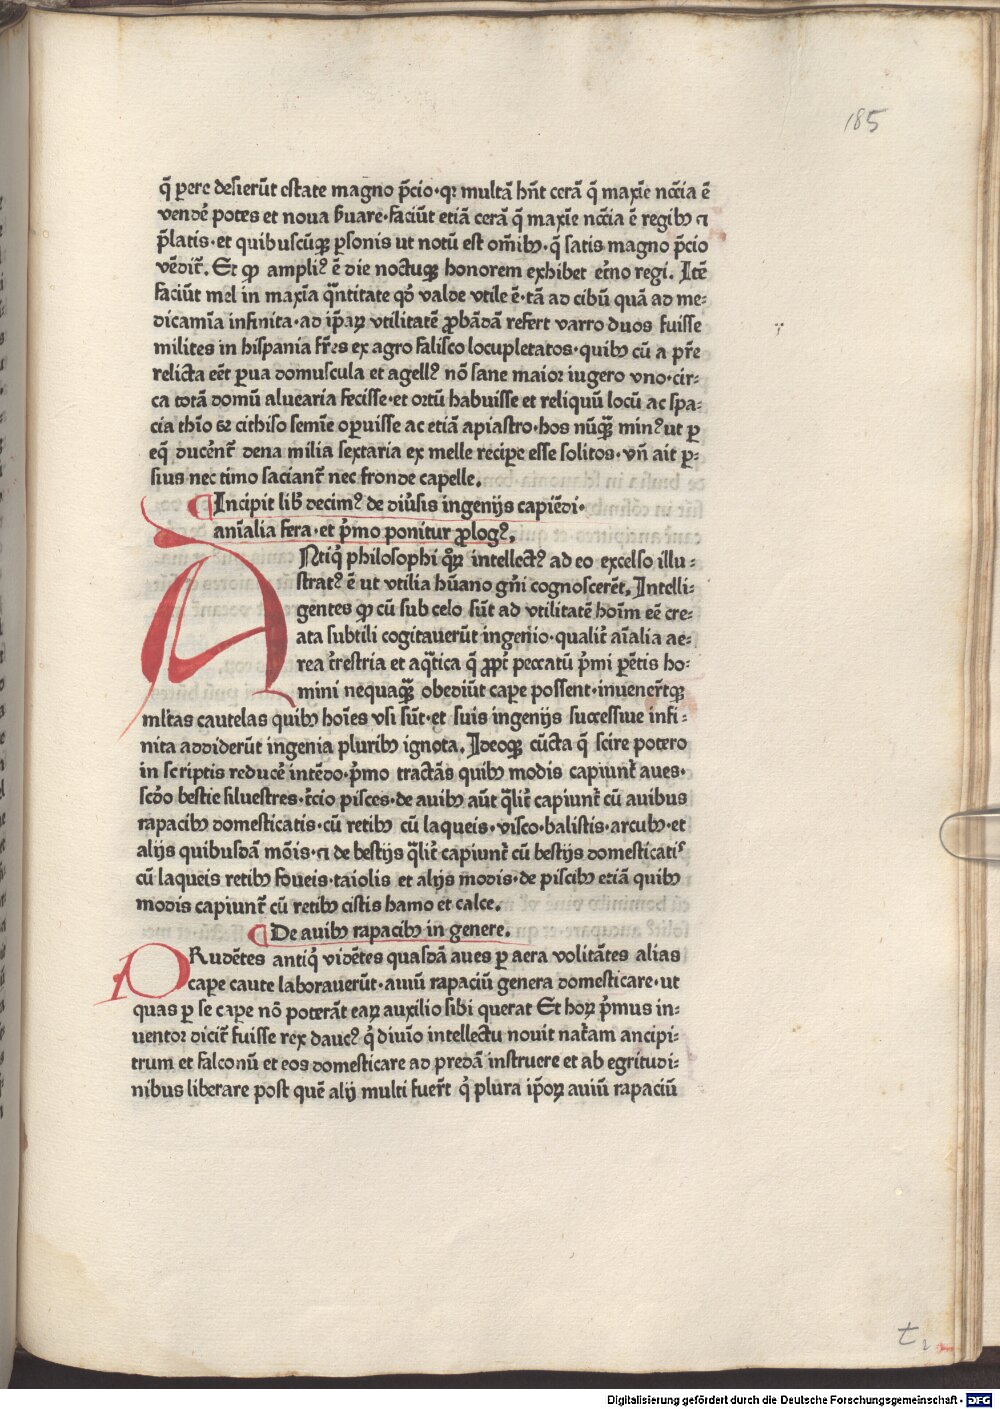 185
q̄ ꝑere desierūt estate magno p̄cio·qꝛ multā hn̄t cerā q̄ maxīe nc̄cia ē
vendē potes et noua ẜuare·faciūt etiā cerā q̄ maxīe nc̄cia ē regibꝰ ⁊
p̄latis·et quibuscūqꝫ ꝑsonis ut notū est om̄ibꝫ·q̄ satis magno p̄cio
vēdit᷑. Et ꝙ ampliꝰ ē die noctuqꝫ honorem exhibet et̓no regi. Itē
faciūt mel in maxīa q̄ntitate qd̓ valde vtile ē·tā ad cibū quā ad me⸗
dicamīa infinita·ad ip̄aꝝ vtilitatē ꝓbādā refert varro duos fuisse
milites in hispania fr̄es ex agro falisco locupletatos·quibꝫ cū a pr̄e
relicta eēt ꝑua domuscula et agellꝰ nō sane maior iugero vno·cir⸗
ca totā domū aluearia fecisse·et ortū habuisse et reliquū locū ac spa⸗
cia thīo ⁊ cithiso semīe oꝑuisse ac etiā apiastro·hos nūqꝫ̄ minꝰ ut ꝑ
eq̄ ducēnt᷑ dena milia sextaria ex melle reciꝑe esse solitos·vn̄ ait ꝑ⸗
sius nec timo saciant᷑ nec fronde capelle.
¶ Incipit lib̓ decimꝰ de diu̓sis ingenijs capiēdi·
anīalia fera·et p̓mo ponitur ꝓlogꝰ.
ANtiq̓ philosophi qꝝ̄ intellectꝰ ad eo excelso illu⸗
stratꝰ ē ut vtilia hūano gn̄i cognoscerēt. Intelli⸗
gentes ꝙ cū sub celo sūt ad vtilitatē hoīm eē cre⸗
ata subtili cogitauerūt ingenio·qualit̓ aīalia ae⸗
rea t̓restria et aq̄tica q̄ ꝓpt̓ peccatū p̓mi ꝑētis ho⸗
mini nequaqꝫ̄ obediūt caꝑe possent·inuener̄tqꝫ
ml̓tas cautelas quibꝫ hoīes vsi sūt·et suis ingenijs successiue infi⸗
nita addiderūt ingenia pluribꝫ ignota. Ideoqꝫ cūcta q̄ scire potero
in scriptis reducē intēdo·p̓mo tractās quibꝫ modis capiunt᷑ aues·
scd̓o bestie siluestres·t̓cio pisces·de auibꝫ aūt q̄lit̓ capiunt᷑ cū auibus
rapacibꝫ domesticatis·cū retibꝫ cū laqueis·visco·balistis·arcubꝫ·et
alijs quibusdā mōis·⁊ de bestijs q̄lit̓ capiunt᷑ cū bestijs domesticatis
cū laqueis retibꝫ foueis·taiolis et alijs modis·de piscibꝫ etiā quibꝫ
modis capiunt᷑ cū retibꝫ cistis hamo et calce.
¶ De auibꝫ rapacibꝫ in genere.
PRudētes antiq̓ vidētes quasdā aues ꝑ aera volitātes alias
caꝑe caute laborauerūt·auiū rapaciū genera domesticare·ut
quas ꝑ se caꝑe nō poterāt eaꝝ auxilio sibi querāt Et hoꝝ p̓mus in⸗
uentor dicit᷑ fuisse rex daucꝰ q̓ diuīo intellectu nouit nat̄am ancipi⸗
trum et falconū et eos domesticare ad predā instruere et ab egritudi⸗
nibus liberare post quē alij multi fuer̄t q̓ plura ip̄oꝝ auiū rapaciū
Digitalisierung gefördert durch die Deutsche Forschungsgemeinschaft - DFG